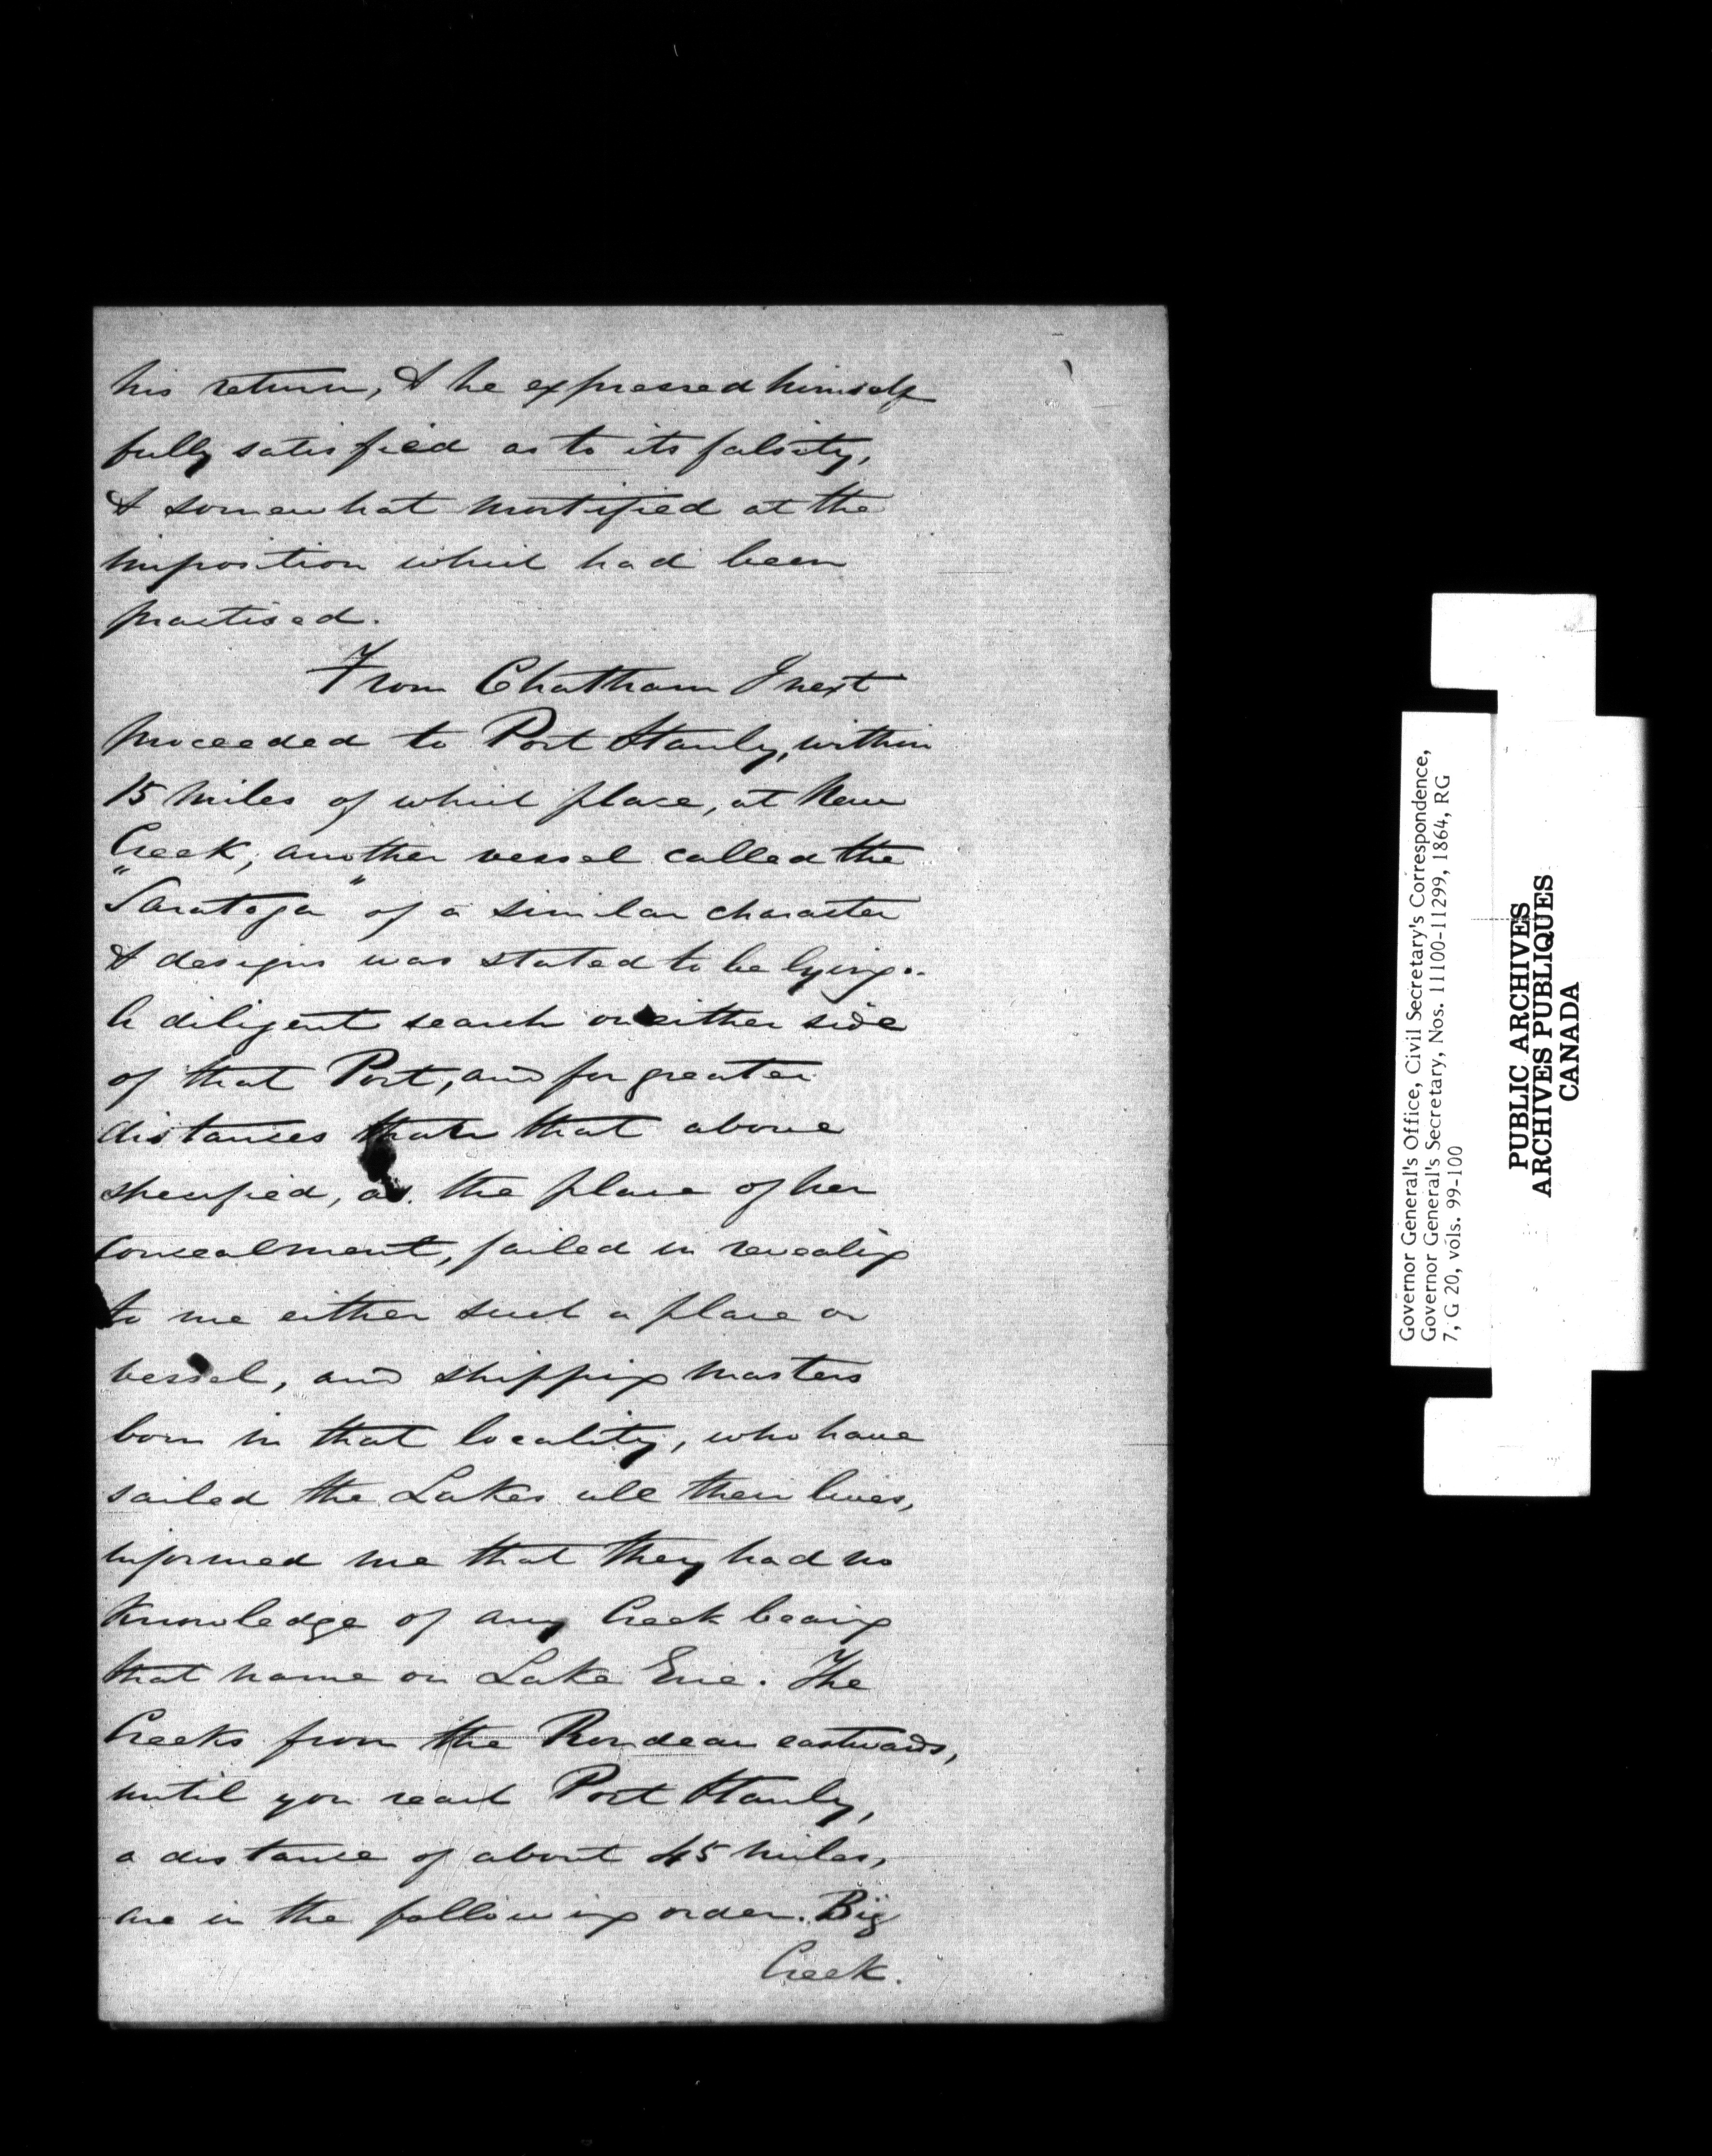 his return, & he expressed himself
fully satisfied as to its falsity,
& somewhat mortified at the
imposition which had been
practised.
From Chatham I next
proceeded to Port Stanly, within
15 miles of which place, at New
Creek, another vessel called the
"Saratoga" of a similar character
& designs was stated to be lying.
A diligent search on either side
of that Port, and for greater
distances than that above
specified, as the place of her
concealment, failed in revealing
to me either such a place or
vessel, and shipping masters
born in that locality, who have
sailed the Lakes all their lives,
informed me that they had no
knowledge of any Creek bearing
that name on Lake Erie. The
Creeks from the Rondeau eastwards,
until you reach Port Stanly,
a distance of about 45 miles,
are in the following order. Big
Creek.
Governor General's Office, Civil Secretary's Correspondence,
Governor General's Secretary, Nos. 11100-11299, 1864, RG
7, G 20, vols. 99-100
PUBLIC ARCHIVES
ARCHIVES PUBLIQUES
CANADA